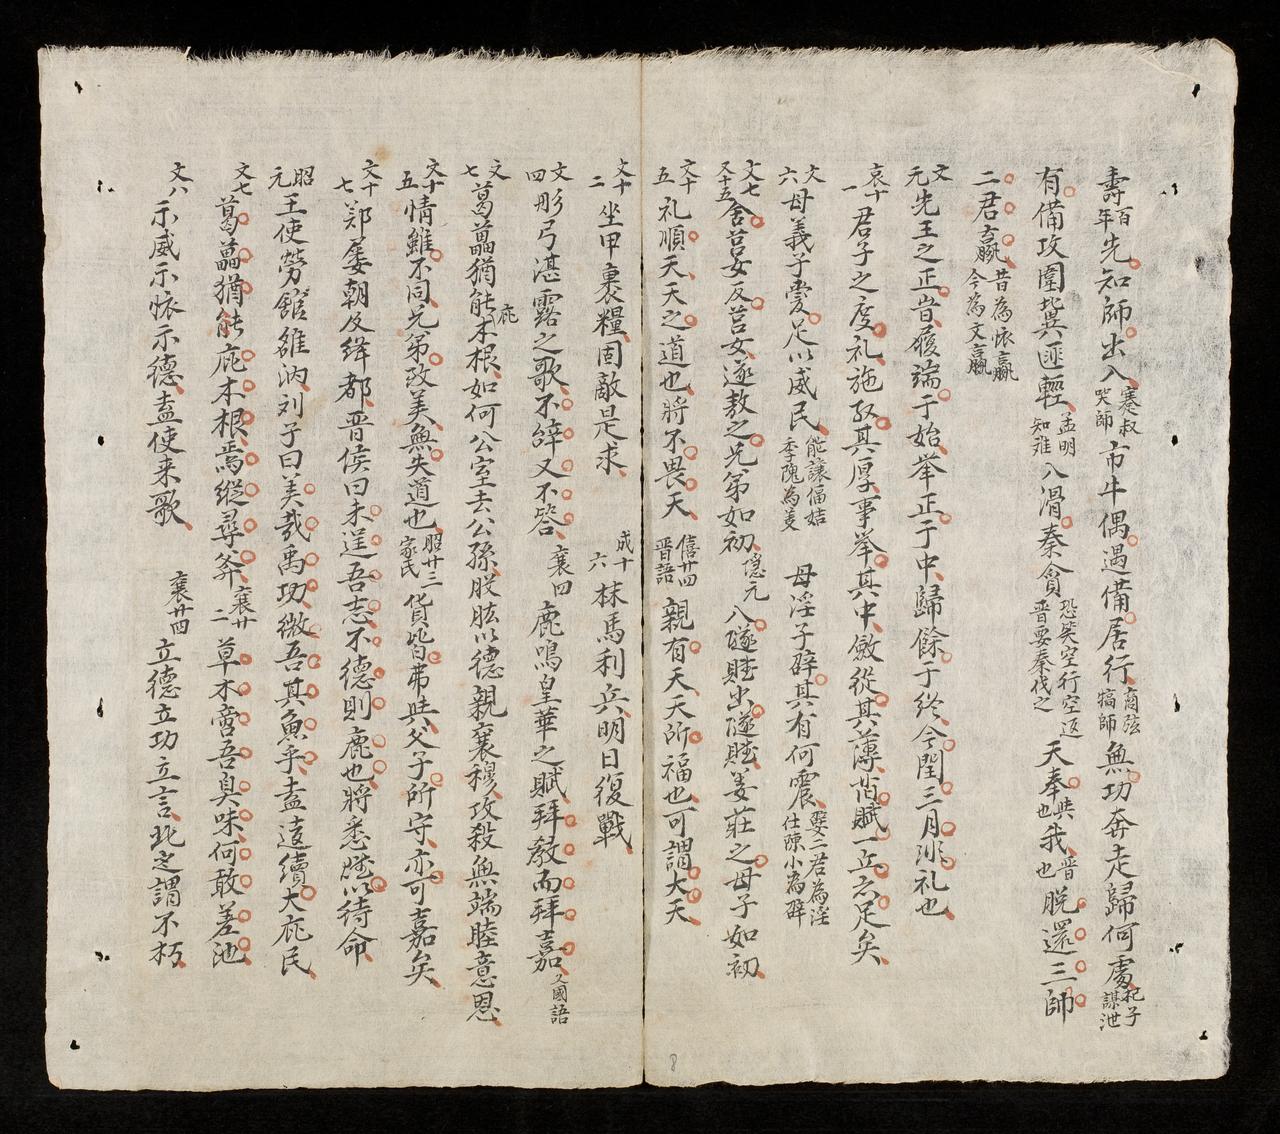 壽百年先知師出入蹇叔哭師市牛偶遇備居行商弦犒師無功奔走歸何處杞子謀泄
有備攻圍冀匪輕孟明知难入滑秦貪恐笑空行空返晋要秦伐之天奉也典我晋也脱還三帥
二君嬴昔為怀嬴今為文嬴
文元先王之正旹履端于始举正于中歸餘于终今閏三月非礼也
哀十一君子之度礼施取其厚事举其中斂從其薄旹賦一丘六足矣
文六母義子爱足以威民能讓偪姞季隗為羙母淫子辟其有何震嬖二君為淫仕陳小為辟
文七又十五舍莒女反莒女遂敖之兄弟如初隱元入隧賦出隧賦姜莊之母子如初
文十五礼順天天之道也將不畏天僖廿四晋語親有天天所福也可謂大天
文十二坐甲裹糧固敵是求成十六秣馬利兵明日復戰
文四彤弓湛露之歌不辞又不答襄四鹿鳴皇華之賦拜教而拜嘉又國語
文七葛藟猶能庇本根如何公室去公孫股肱以德親襄穆攻殺無端睦意恩
文十五情雖不同兄弟致美無失道也昭廿三家民貨皆弗共父子所守亦可嘉矣
文十七郑屡朝及绛都晋侯曰未逞吾志不德則鹿也將悉賦以待命
昭元王使勞館雒汭刘子曰美哉禹功微吾其魚乎盍遠續大庇民
文七葛藟猶能庇本根焉縱尋斧襄廿二草木啻吾臭味何敢差池
文八示威示怀示德盍使来歌襄廿四立德立功立言此之謂不朽
8